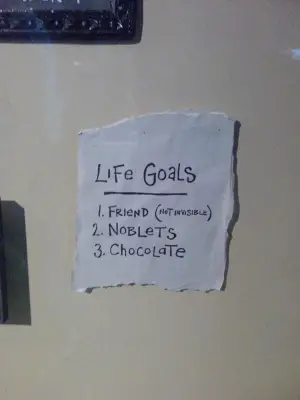 Life Goals
1. Friend (not invisible)
2. Noblets
3. Chocolate